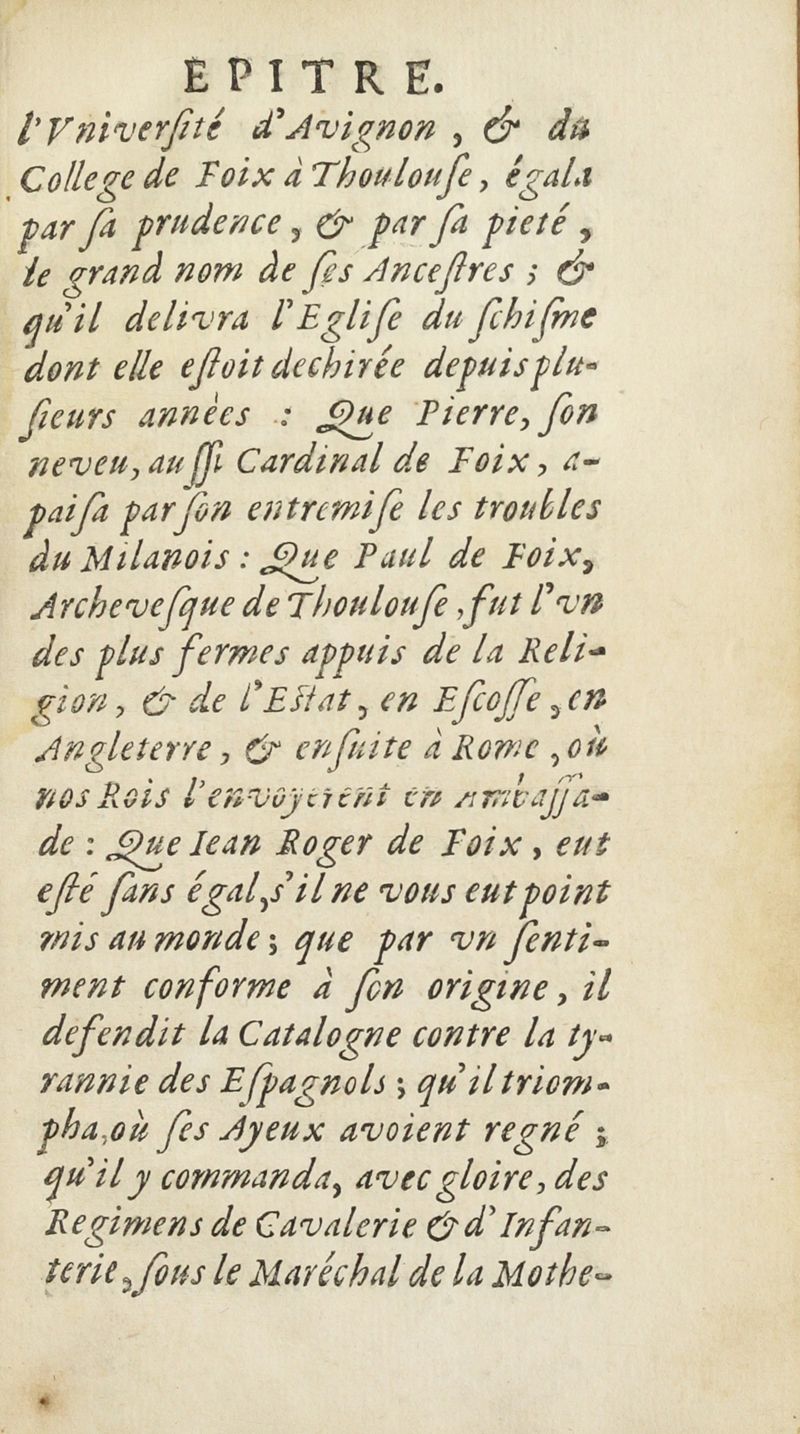 EPITRE.
l'Vniverſité d'Avignon , & du
College de Foix à Thoulouſe, égala
par ſa prudence , & par ſa pieté ,
le grand nom de ſes Anceſtres ; &
qu'il delivra l'Egliſe du ſchiſme
dont elle eſtoit dechirée depuis plu-
ſieurs années : Que Pierre, ſon
neveu, auſſi Cardinal de Foix, a-
paiſa par ſon entremiſe les troubles
du Milanois : Que Paul de Foix,
Archeveſque de Thoulouſe , fut l'vn
des plus fermes appuis de la Reli-
gion, & de l'Eſtat, en Eſcoſſe , en
Angleterre , & enſuite à Rome , où
nos Rois l'envoyerent en Ambaſſa-
de : Que Iean Roger de Foix , eut
eſté ſans égal, s'il ne vous eut point
mis au monde ; que par vn ſenti-
ment conforme à ſon origine, il
defendit la Catalogne contre la ty-
rannie des Eſpagnols ; qu'il triom-
pha, où ſes Ayeux avoient regné ;
qu'il y commanda, avec gloire, des
Regimens de Cavalerie & d'Infan-
terie, ſous le Maréchal de la Mothe-